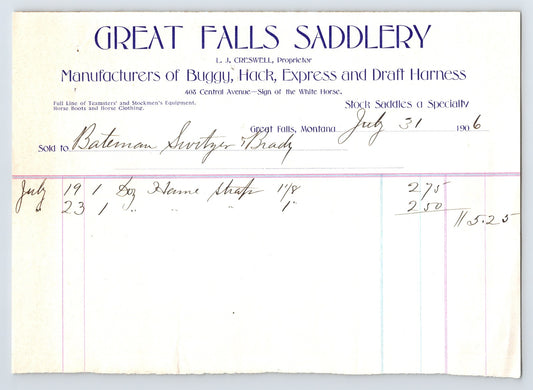 GREAT FALLS SADDLERY
L. J. CRESWELL, Proprietor
Manufacturers of Buggy, Hack, Express and Draft Harness
408 Central Avenue—Sign of the White Horse.
Full Line of Teamsters' and Stockmen's Equipment,
Horse Boots and Horse Clothing.
Stock Saddles a Specialty
Great Falls, Montana July 31 1906
Sold to Bateman Switzer & Brady
July 19 1 Doz Hame Straps 1 1/8 2 75
" 23 1 " " " 1" 2 50
5.25